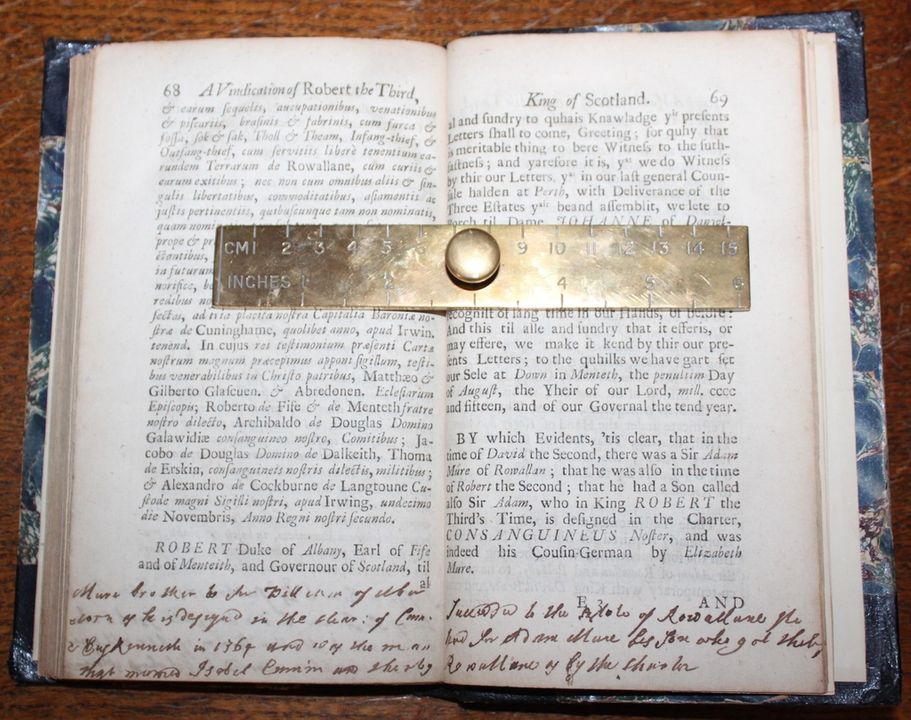 68 A Vindication of Robert the Third,
& earum sequelis, aucupationibus, venationibus
& piscariis, brasinis & fabrinis, cum furca &
fossa, sok & sak, Tholl & Theam, Infang-thief, &
Outfang-thief, cum servitiis liberè tenentium ea-
rundem Terrarum de Rowallane, cum curiis &
earum exitibus; nec non cum omnibus aliis & sin-
gulis libertatibus, commoditatibus, asiamentis ac
justis pertinentiis, quibuscunque tam non nominatis,
quam nomi
prope & pr
ctantibus,
in futurum
norifice, be
redibus nos
sectas, ad tria placita nostra Capitalia Baroniæ no-
stræ de Cuninghame, quolibet anno, apud Irwin.
tenend. In cujus rei testimonium præsenti Cartæ
nostrum magnum præcepimus apponi sigillum, testi-
bus venerabilibus in Christo patribus, Matthæo &
Gilberto Glascuen. & Abredonen. Eclesiarum
Episcopis; Roberto de Fife & de Menteth fratre
nostro dilecto, Archibaldo de Douglas Domino
Galawidiæ consanguineo nostro, Comitibus; Ja-
cobo de Douglas Domino de Dalkeith, Thoma
de Erskin, consanguineis nostris dilectis, militibus;
& Alexandro de Cockburne de Langtoune Cu-
stode magni Sigilli nostri, apud Irwing, undecimo
die Novembris, Anno Regni nostri secundo.
ROBERT Duke of Albany, Earl of Fife
and of Menteith, and Governour of Scotland, til
al
CM 1 2 3 4 5 6 9 10 11 12 13 14 15
INCHES 1 2 4 5 6
King of Scotland. 69
al and sundry to quhais Knawladge yir presents
Letters shall to come, Greeting; for quhy that
is meritable thing to bere Witness to the suth-
fastness; and yarefore it is, yat we do Witness
by thir our Letters, yat in our last general Coun-
sale halden at Perth, with Deliverance of the
Three Estates yair beand assemblit, we lete to
borch til Dame JOHANNE of Daniel-
recognist of lang time in our Hands, of before:
And this til alle and sundry that it efferis, or
may effere, we make it kend by thir our pre-
sents Letters; to the quhilks we have gart set
our Sele at Down in Menteth, the penultim Day
of August, the Yheir of our Lord, mill. cccc
and fifteen, and of our Governal the tend year.
BY which Evidents, 'tis clear, that in the
time of David the Second, there was a Sir Adam
Mure of Rowallan; that he was also in the time
of Robert the Second; that he had a Son called
also Sir Adam, who in King ROBERT the
Third's Time, is designed in the Charter,
CONSANGUINEUS Noster, and was
indeed his Cousin-German by Elizabeth
Mure.
E 2 AND
Mure brother to
as he is desyned in the char. of
in 1364 and was the man
that married Isobel Cumin and thereby
Succeeded to the Estate of Rowallane
and Sr Adam Mure his son who got
Rowallane by the charter